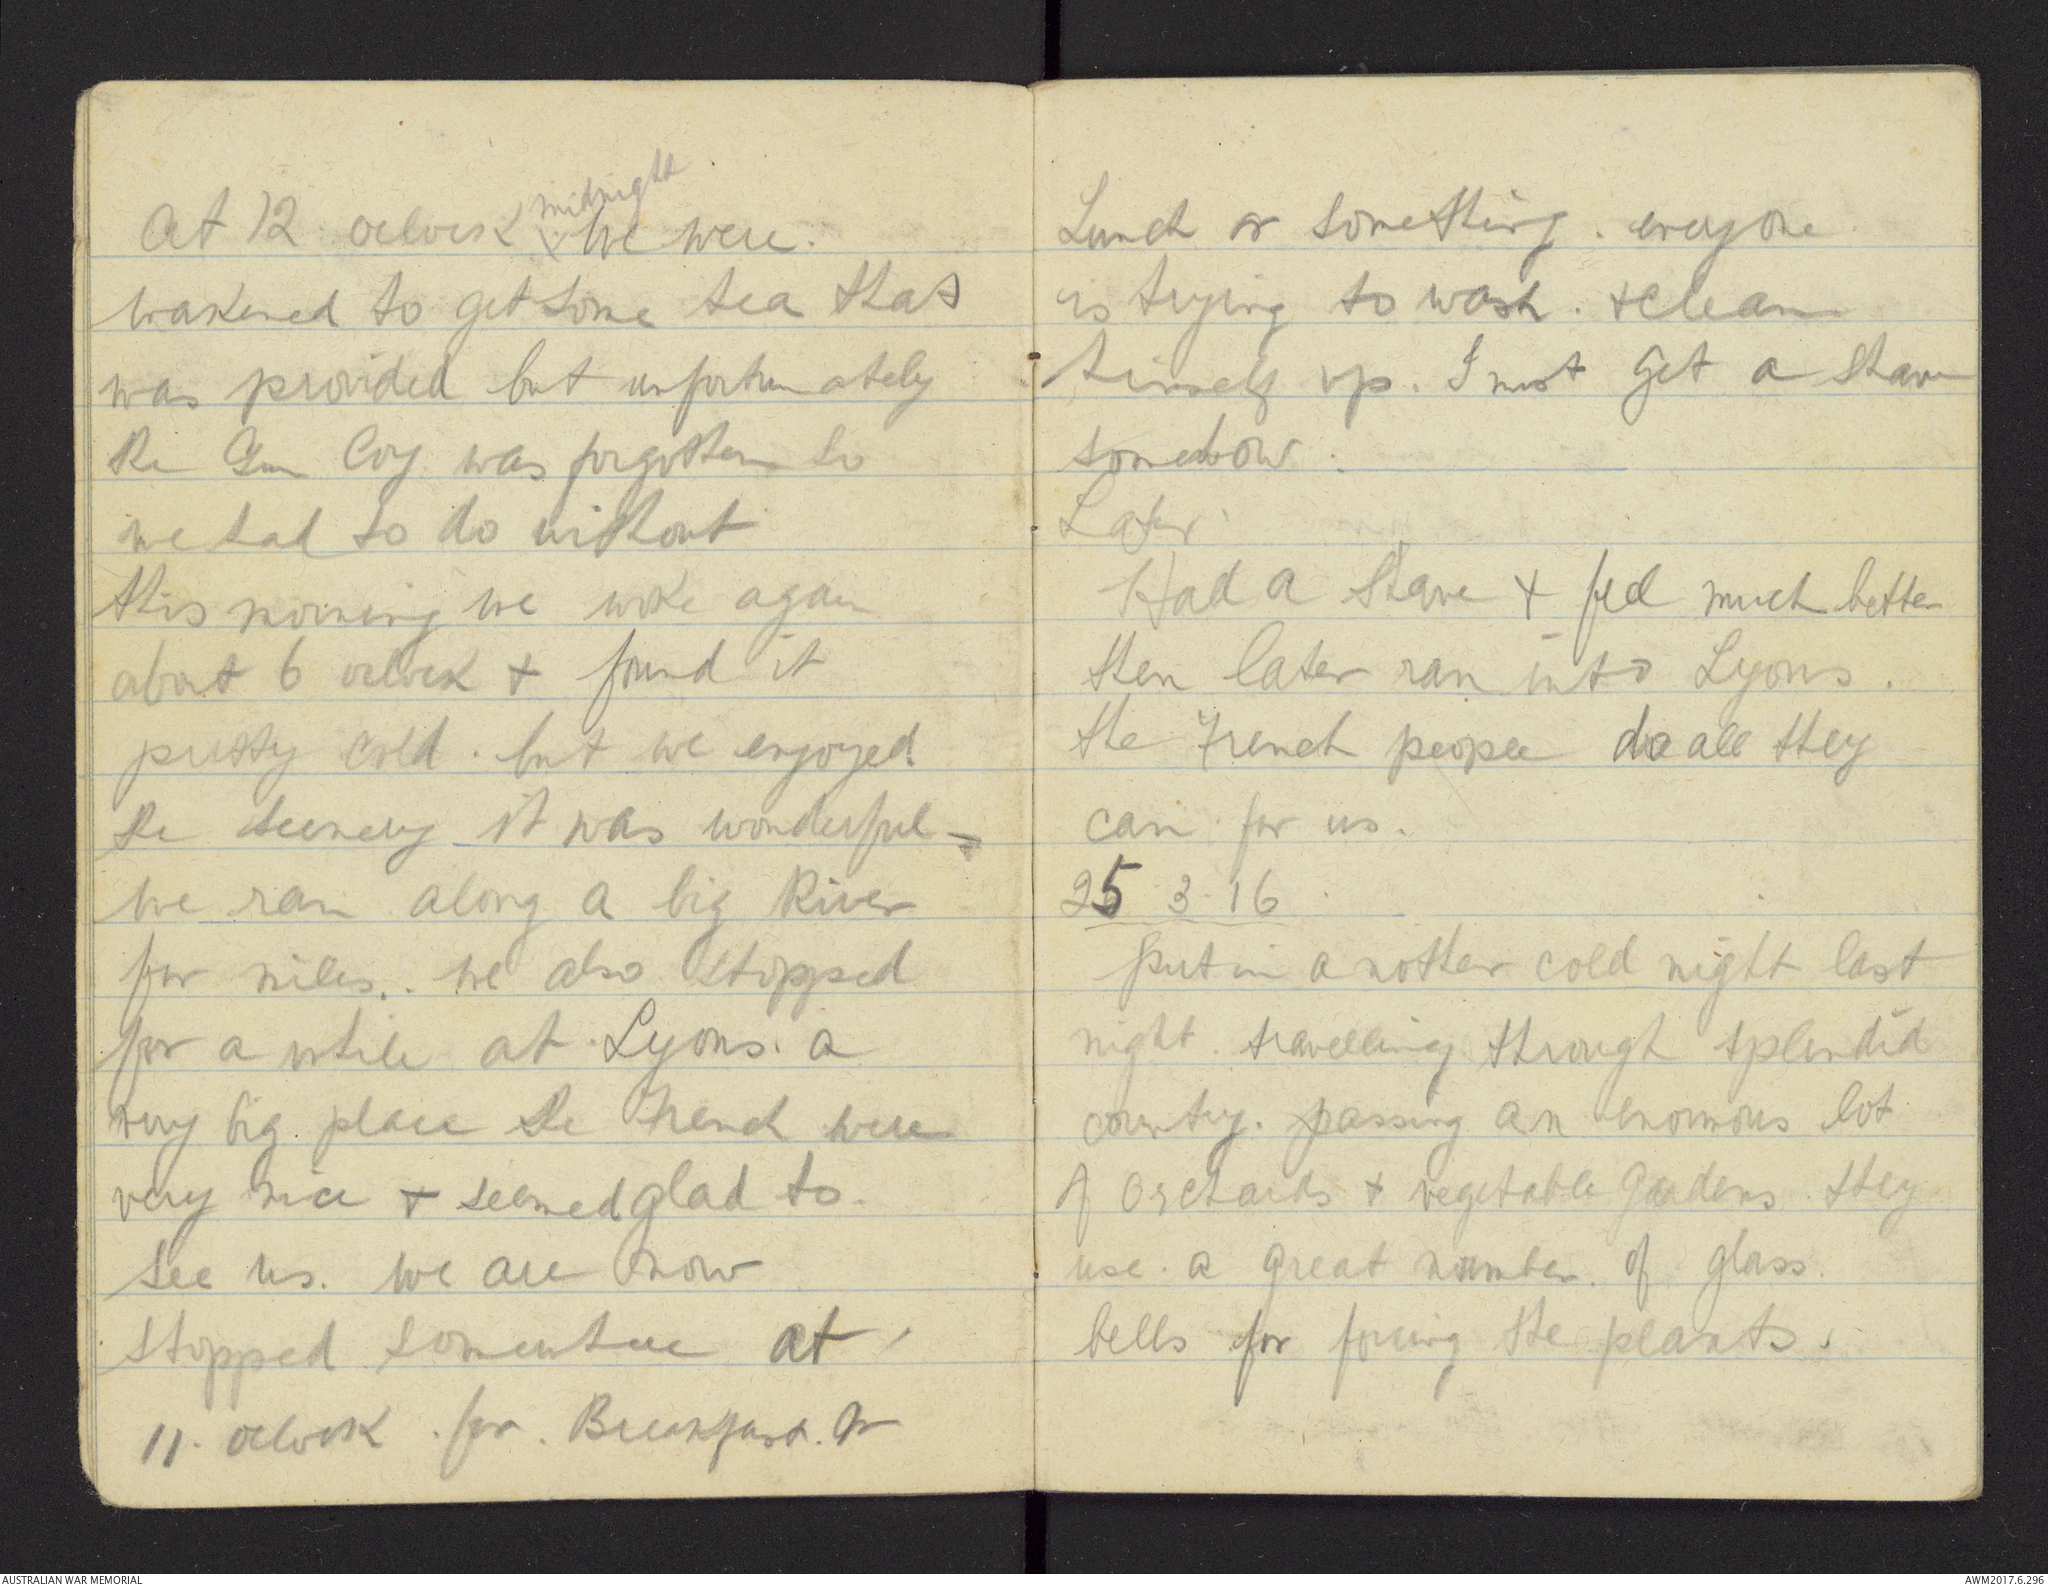 At 12 oclock midnight we were.
wakened to get some tea that
was provided but unfortunately
the Gun Coy was forgotten so
we had to do without
this morning we woke again
about 6 oclock & found it
pretty cold. but we enjoyed
the scenery it was wonderful -
we ran along a big River
for miles.. we also stopped
for a while at Lyons. a
very big place the French were
very nice & seemed glad to.
see us. we are now
stopped somewhere at
11. oclock. for. Breakfast. or
Lunch or something. everyone
is trying to wash. & clean
himself up. I must get a shave
somehow.
Later.
Had a shave & feel much better
then later ran into Lyons.
the French people do all they
can for us.
25 3. 16
Put in another cold night last
night. travelling through splendid
country. passing an enormous lot
of orchards & vegetable gardens. they
use. a great number. of glass.
bells for forcing the plants.
AUSTRALIAN WAR MEMORIAL
AWM2017.6.296